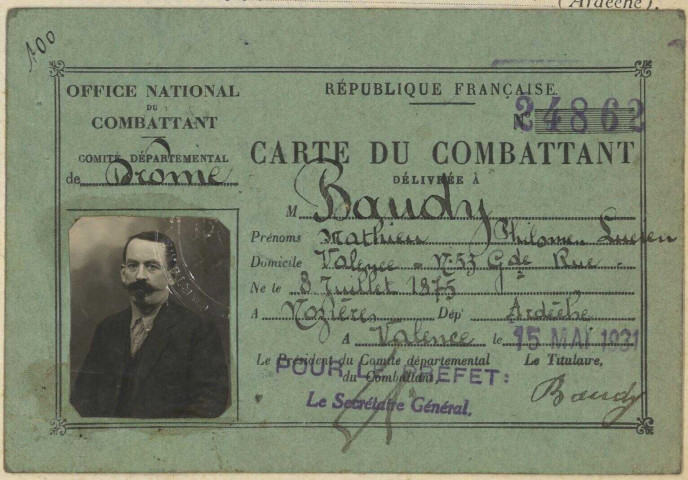 (Ardèche).
100
OFFICE NATIONAL
DU
COMBATTANT
COMITÉ DÉPARTEMENTAL
de Drôme
RÉPUBLIQUE FRANÇAISE
N° 24862
CARTE DU COMBATTANT
DÉLIVRÉE À
M Baudy
Prénoms Mathieu Philomen Lucien
Domicile Valence - N° 53 Gde Rue -
Né le 8 Juillet 1875
A Nozières Dép' Ardèche
A Valence le 15 MAI 1931
Le Président du Comité départemental
du Combattant,
Le Titulaire,
POUR LE PRÉFET:
Le Secrétaire Général.
Baudy